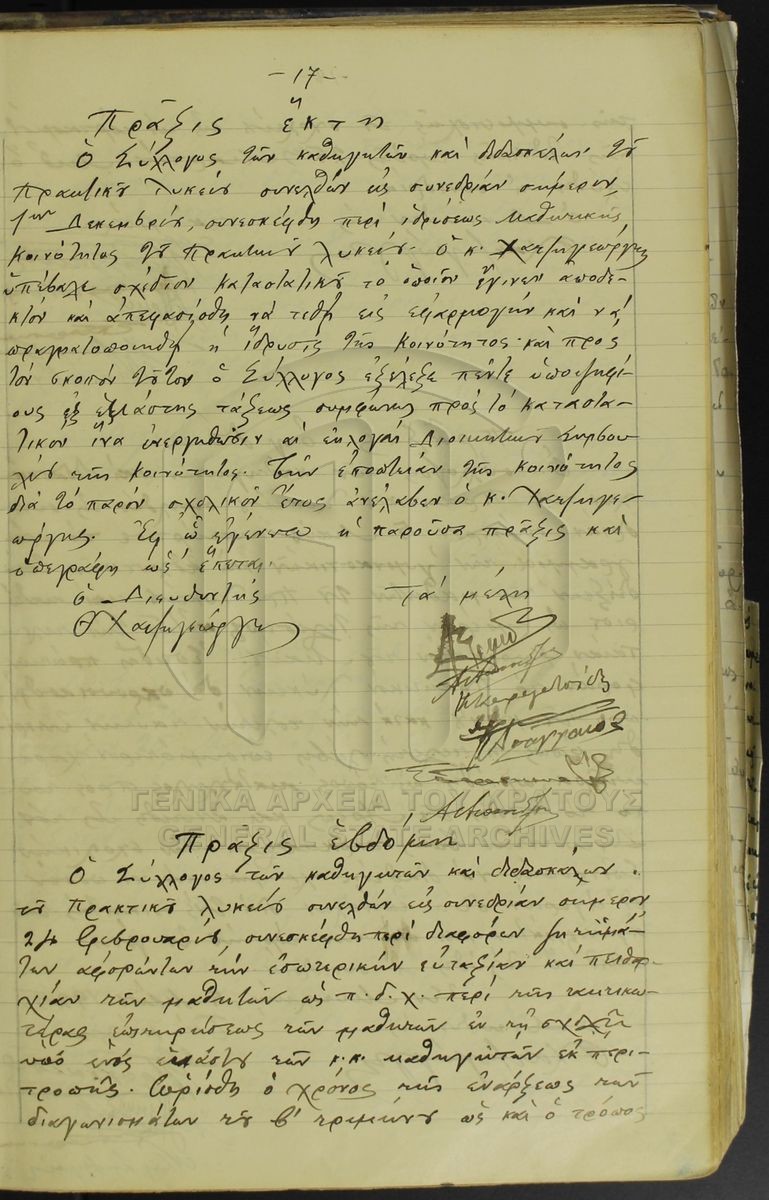 - 17 -
Πρᾶξις ἕκτη
Ὁ Σύλλογος τῶν καθηγητῶν καὶ διδασκάλων τοῦ
Πρακτικοῦ Λυκείου συνελθὼν εἰς συνεδρίαν σήμερον,
1ην Δεκεμβρίου, συνεσκέφθη περὶ ἱδρύσεως Μαθητικῆς
Κοινότητος τοῦ Πρακτικοῦ Λυκείου. Ὁ κ. Χατζηγεώργης
ὑπέβαλε σχέδιον καταστατικοῦ τὸ ὁποῖον ἔγινεν ἀποδε-
κτόν καὶ ἀπεφασίσθη νὰ τεθῇ εἰς ἐφαρμογὴν καὶ νὰ
πραγματοποιηθῇ ἡ ἵδρυσις τῆς Κοινότητος· καὶ πρὸς
τὸν σκοπόν τοῦτον ὁ Σύλλογος ἐξέλεξε πέντε ὑποψηφί-
ους ἐξ ἑκάστης τάξεως συμφώνως πρὸς τὸ καταστα-
τικὸν ἵνα ἐνεργηθῶσιν αἱ ἐκλογαὶ Διοικητικοῦ Συμβου-
λίου τῆς Κοινότητος. Τὴν ἐποπτείαν τῆς Κοινότητος
διὰ τὸ παρὸν σχολικὸν ἔτος ἀνέλαβεν ὁ κ. Χατζηγε-
ώργης. Ἐφ' ᾧ ἐγένετο ἡ παροῦσα πρᾶξις καὶ
ὑπεγράφη ὡς ἕπεται.
ὁ Διευθυντής
Τὰ μέλη
Θ Χατζηγεώργης
ΓΕΝΙΚΑ ΑΡΧΕΙΑ ΤΟΥ ΚΡΑΤΟΥΣ
GENERAL STATE ARCHIVES
Πρᾶξις ἑβδόμη
Ὁ Σύλλογος τῶν καθηγητῶν καὶ διδασκάλων
τοῦ Πρακτικοῦ Λυκείου συνελθὼν εἰς συνεδρίαν σήμερον
Φεβρουαρίου, συνεσκέφθη περὶ διαφόρων ζητημά-
των ἀφορώντων τὴν ἐσωτερικὴν εὐταξίαν καὶ πειθαρ-
χίαν τῶν μαθητῶν ὡς π.δ.χ. περὶ τῆς τακτικω-
τέρας ἐπιτηρήσεως τῶν μαθητῶν ἐν τῇ σχολῇ
ὑπὸ ἑνὸς ἑκάστου τῶν κ.κ. καθηγητῶν ἐκ περι-
τροπῆς. Ὡρίσθη ὁ χρόνος τῆς ἐνάρξεως τῶν
διαγωνισμάτων τοῦ β' τριμήνου ὡς καὶ ὁ τρόπος